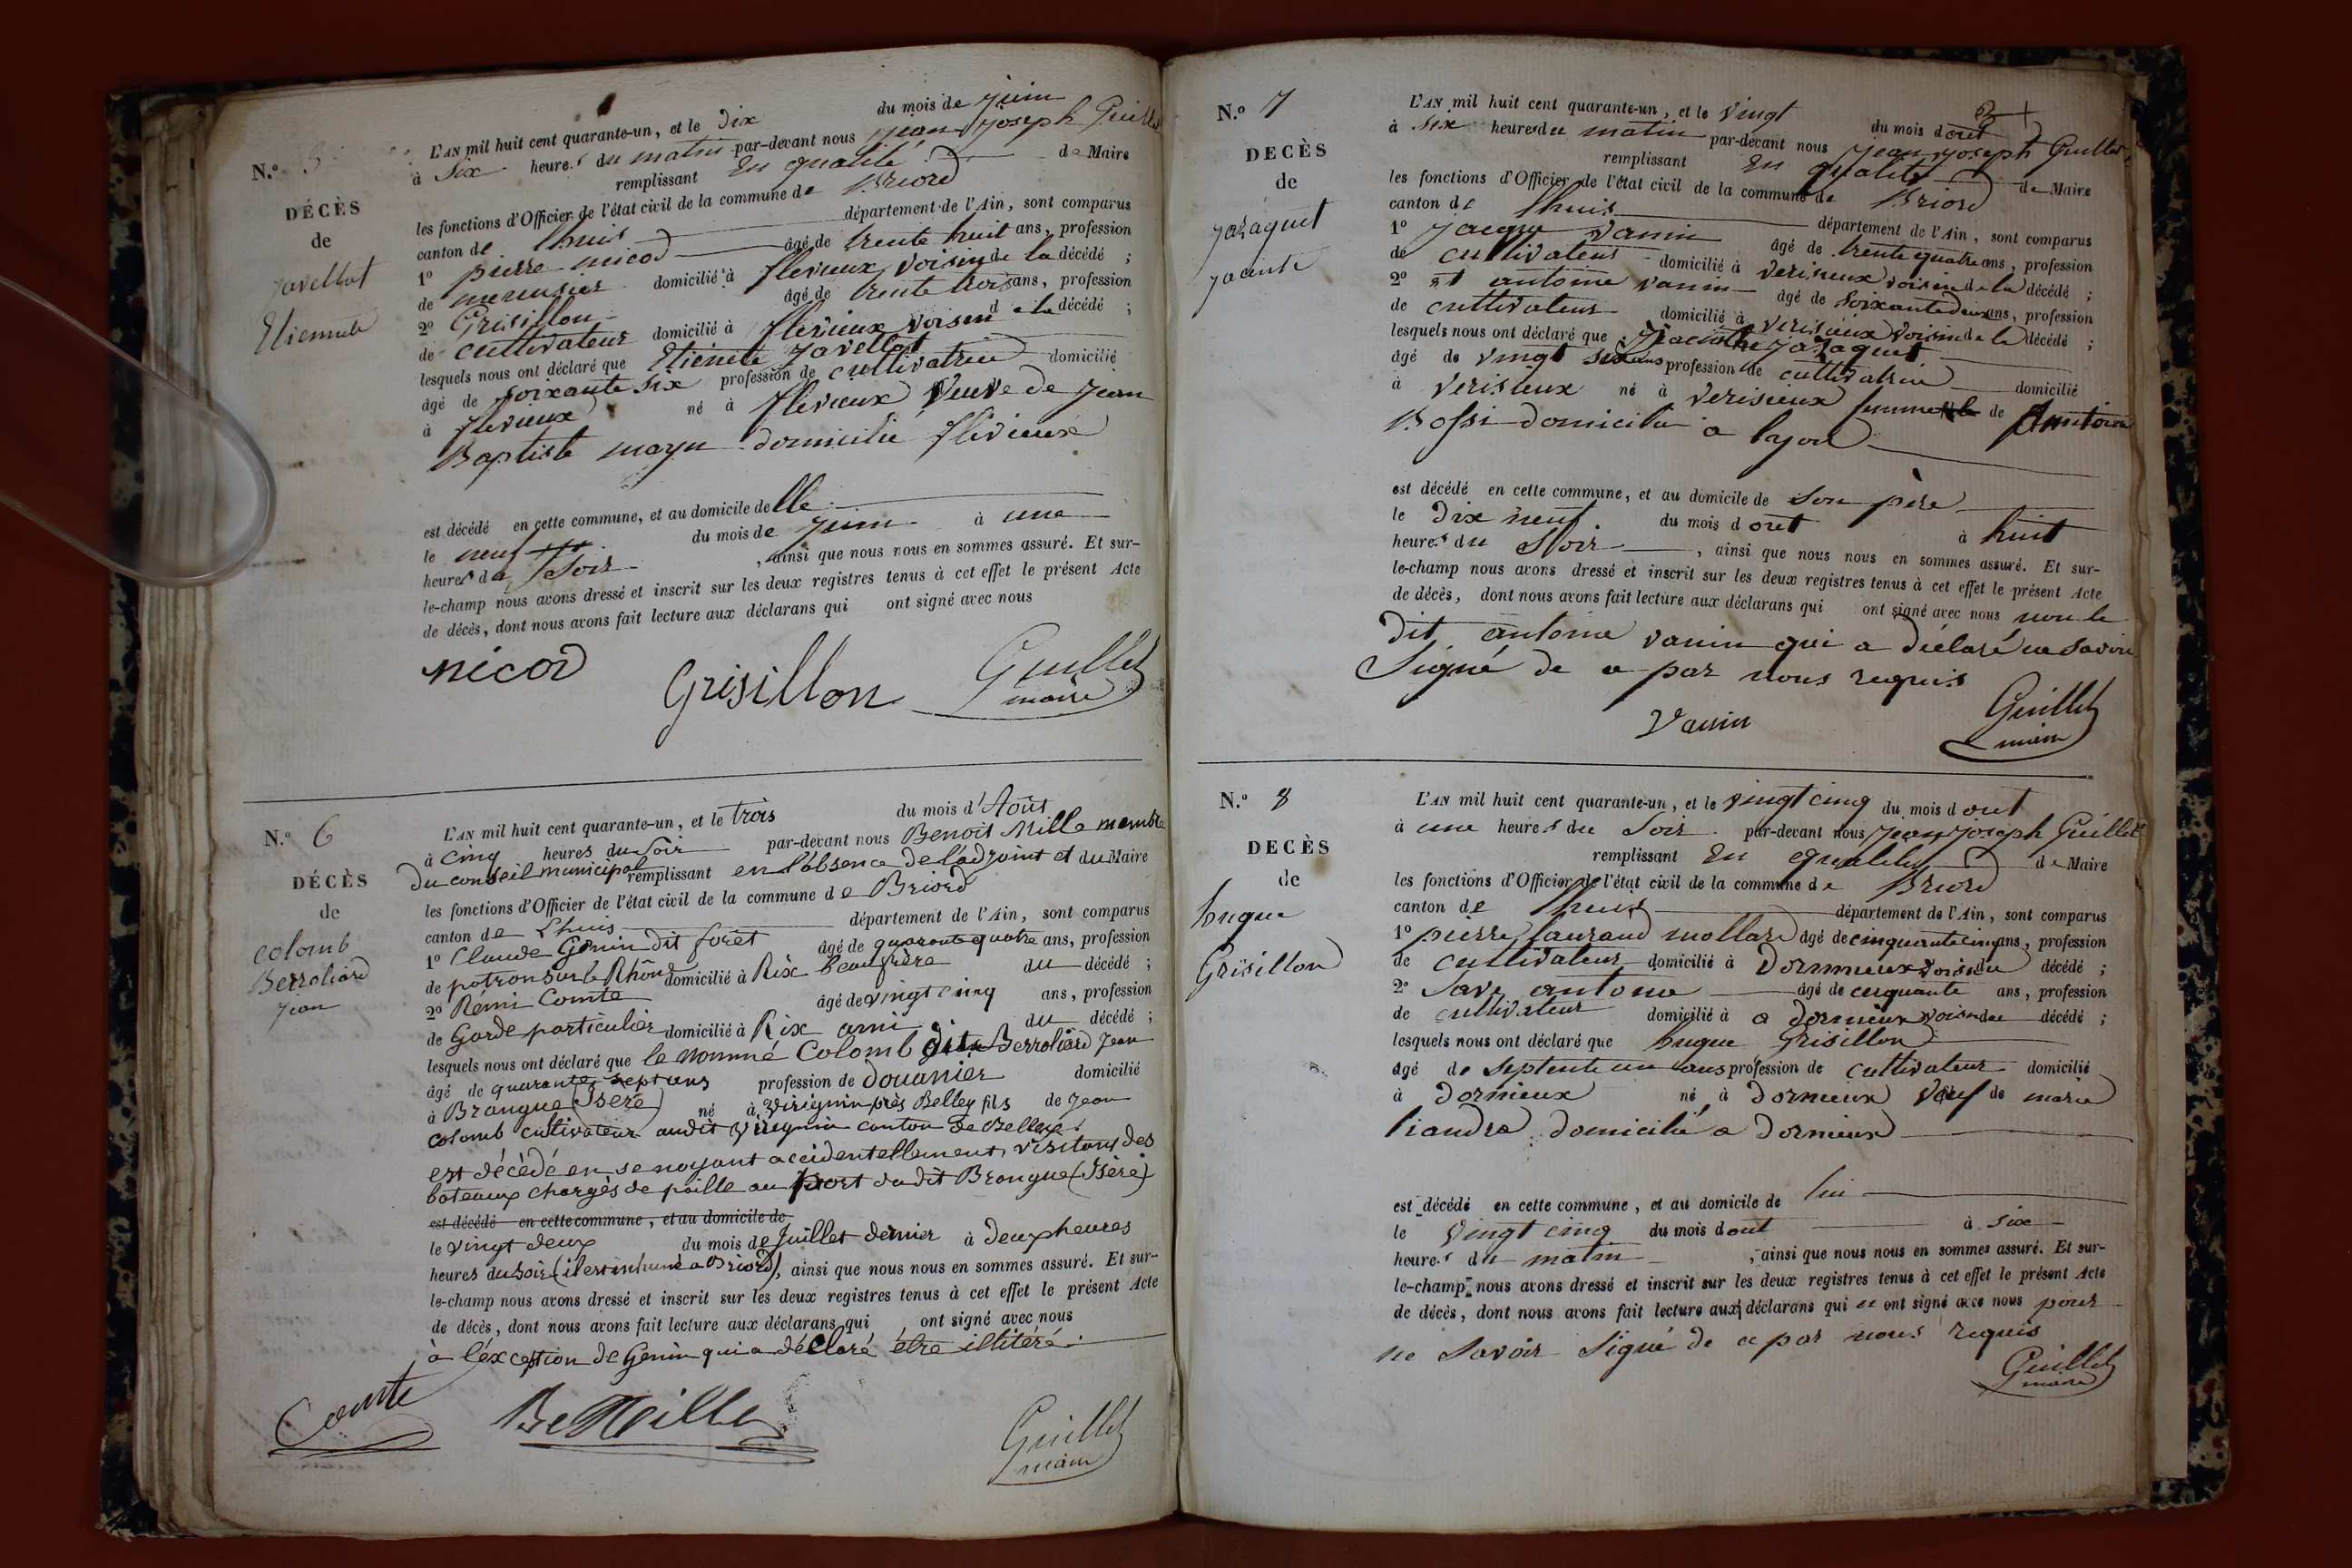 N.º 5
DÉCÈS
de
Javellot
Etiennete
L'AN mil huit cent quarante-un, et le Dix du mois de juin
à Six heures du matin par-devant nous jean joseph Guillet
remplissant En qualité de Maire
les fonctions d'Officier de l'état civil de la commune de Briord
canton de lhuis département de l'Ain, sont comparus
1º pierre micod âgé de trente huit ans, profession
de menusier domicilié à flevieux voisin de la décédé ;
2º Grisillon âgé de trente trois ans, profession
de cultivateur domicilié à flevieux voisin d e la décédé ;
lesquels nous ont déclaré que Etienete Javellot
âgé de soixante six profession de cultivatrice domicilié
à flevieux né à flevieux veuve de jean
Baptiste domicilié flevieux
est décédé en cette commune, et au domicile delle
le neuf du mois de juin à une
heures du Soir, ainsi que nous nous en sommes assuré. Et sur-
le-champ nous avons dressé et inscrit sur les deux registres tenus à cet effet le présent Acte
de décès, dont nous avons fait lecture aux déclarans qui ont signé avec nous
micod Grisillon Guillet
maire
N.º 6
DÉCÈS
de
colomb
Berroliard
jean
L'AN mil huit cent quarante-un, et le trois du mois d'Août
à cinq heures du soir par-devant nous Benoit Mille membre
du conseil municipal remplissant en l'absence de l'adjoint et du Maire
les fonctions d'Officier de l'état civil de la commune de Briord
canton de Lhuis département de l'Ain, sont comparus
1º Claude Genin dit forêt âgé de quarante quatre ans, profession
de patron sur le Rhône domicilié à Rix beaufrère du décédé ;
2º Rémi Comte âgé de vingt cinq ans, profession
de Garde particulier domicilié à Rix ami du décédé ;
lesquels nous ont déclaré que le nommé Colomb dit Berroliard Jean
âgé de quarante sept ans profession de douanier domicilié
à Brangue (Isère) né à Virignin près Belley fils de Jean
colomb cultivateur audit Virignin canton de Belley
est décédé en se noyant accidentellement, visitant des
bateaux chargés de paille au port du dit Brangue (Isère)
est décédé en cette commune, et au domicile de
le vingt deux du mois de Juillet dernier à deux heures
heures du soir (il est inhumé a Briord), ainsi que nous nous en sommes assuré. Et sur-
le-champ nous avons dressé et inscrit sur les deux registres tenus à cet effet le présent Acte
de décès, dont nous avons fait lecture aux déclarans qui ont signé avec nous
à l'éxception de Genin qui a déclaré être illitéré.
Comte Be Mille Guillet
maire
N.º 7
DECÈS
de
jazaquet
jacinte
L'AN mil huit cent quarante-un, et le vingt du mois d out
à six heures du matin par-devant nous jean joseph Guillet
remplissant En qualité de Maire
les fonctions d'Officier de l'état civil de la commune de Briord
canton de lhuis département de l'Ain, sont comparus
1º jacque vanin âgé de trente quatre ans, profession
de cultivateur domicilié à verisieux voisin de la décédé ;
2º et antoine vanin âgé de soixante deux ans, profession
de cultivateur domicilié à verisieux voisin de la décédé ;
lesquels nous ont déclaré que jiacinthe jazaquet
âgé de vingt six ans profession de cultivatrice domicilié
à verisieux né à verisieux femme de Antoine
Bossi domicilié a lyon
est décédé en cette commune, et au domicile de son père
le dix neuf du mois d out à huit
heures du Soir, ainsi que nous nous en sommes assuré. Et sur-
le-champ nous avons dressé et inscrit sur les deux registres tenus à cet effet le présent Acte
de décès, dont nous avons fait lecture aux déclarans qui ont signé avec nous non le
dit antoine vanin qui a déclaré ne savoir
Signé de ce par nous requis
Vanin Guillet
maire
N.º 8
DECÈS
de
hugue
Grisillon
L'AN mil huit cent quarante-un, et le vingt cinq du mois d out
à une heures du Soir par-devant nous jean joseph Guillet
remplissant En qualité de Maire
les fonctions d'Officier de l'état civil de la commune de Briord
canton de lhuis département de l'Ain, sont comparus
1º pierre lauraud mollard âgé de cinquante cinq ans, profession
de cultivateur domicilié à Dornieux voisin du décédé ;
2º Save antoine âgé de cinquante ans, profession
de cultivateur domicilié à a dornieux voisin du décédé ;
lesquels nous ont déclaré que hugue Grisillon
âgé de septente un ans profession de cultivateur domicilié
à Dornieux né à Dornieux veuf de marie
liandra domicilié a Dornieux
est décédé en cette commune, et au domicile de lui
le vingt cinq du mois d out à six
heures du matin, ainsi que nous nous en sommes assuré. Et sur-
le-champ nous avons dressé et inscrit sur les deux registres tenus à cet effet le présent Acte
de décès, dont nous avons fait lecture aux déclarans qui n ont signé avec nous pour
ne Savoir Signé de ce par nous requis
Guillet
maire